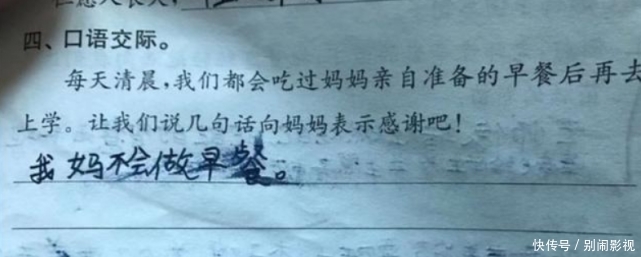 四、口语交际。
每天清晨,我们都会吃过妈妈亲自准备的早餐后再去
上学。让我们说几句话向妈妈表示感谢吧!
我妈不会做早餐。
快传号 / 别闹影视